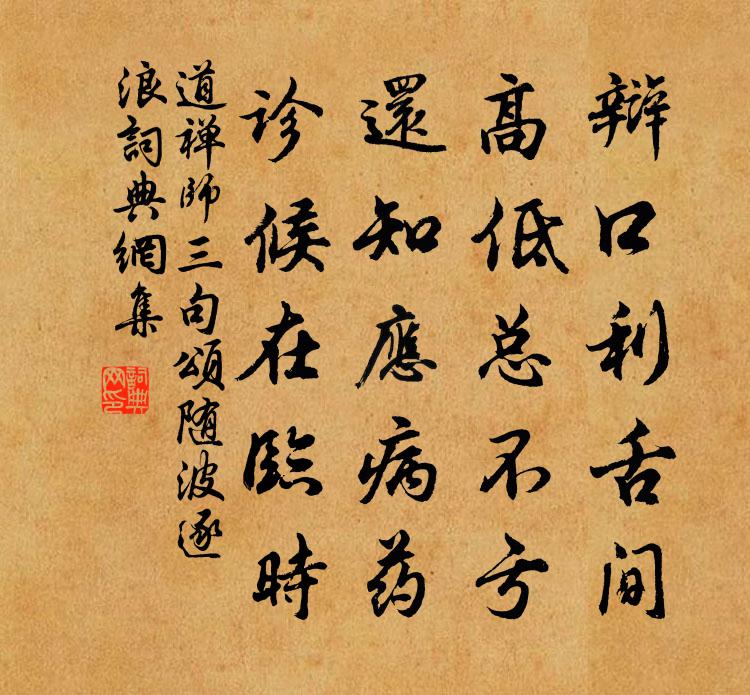 辯口利舌間
高低总不亏
還知應病药
診候在臨時
道禅師三句頌随波逐
浪詞典網集
詞典
网印